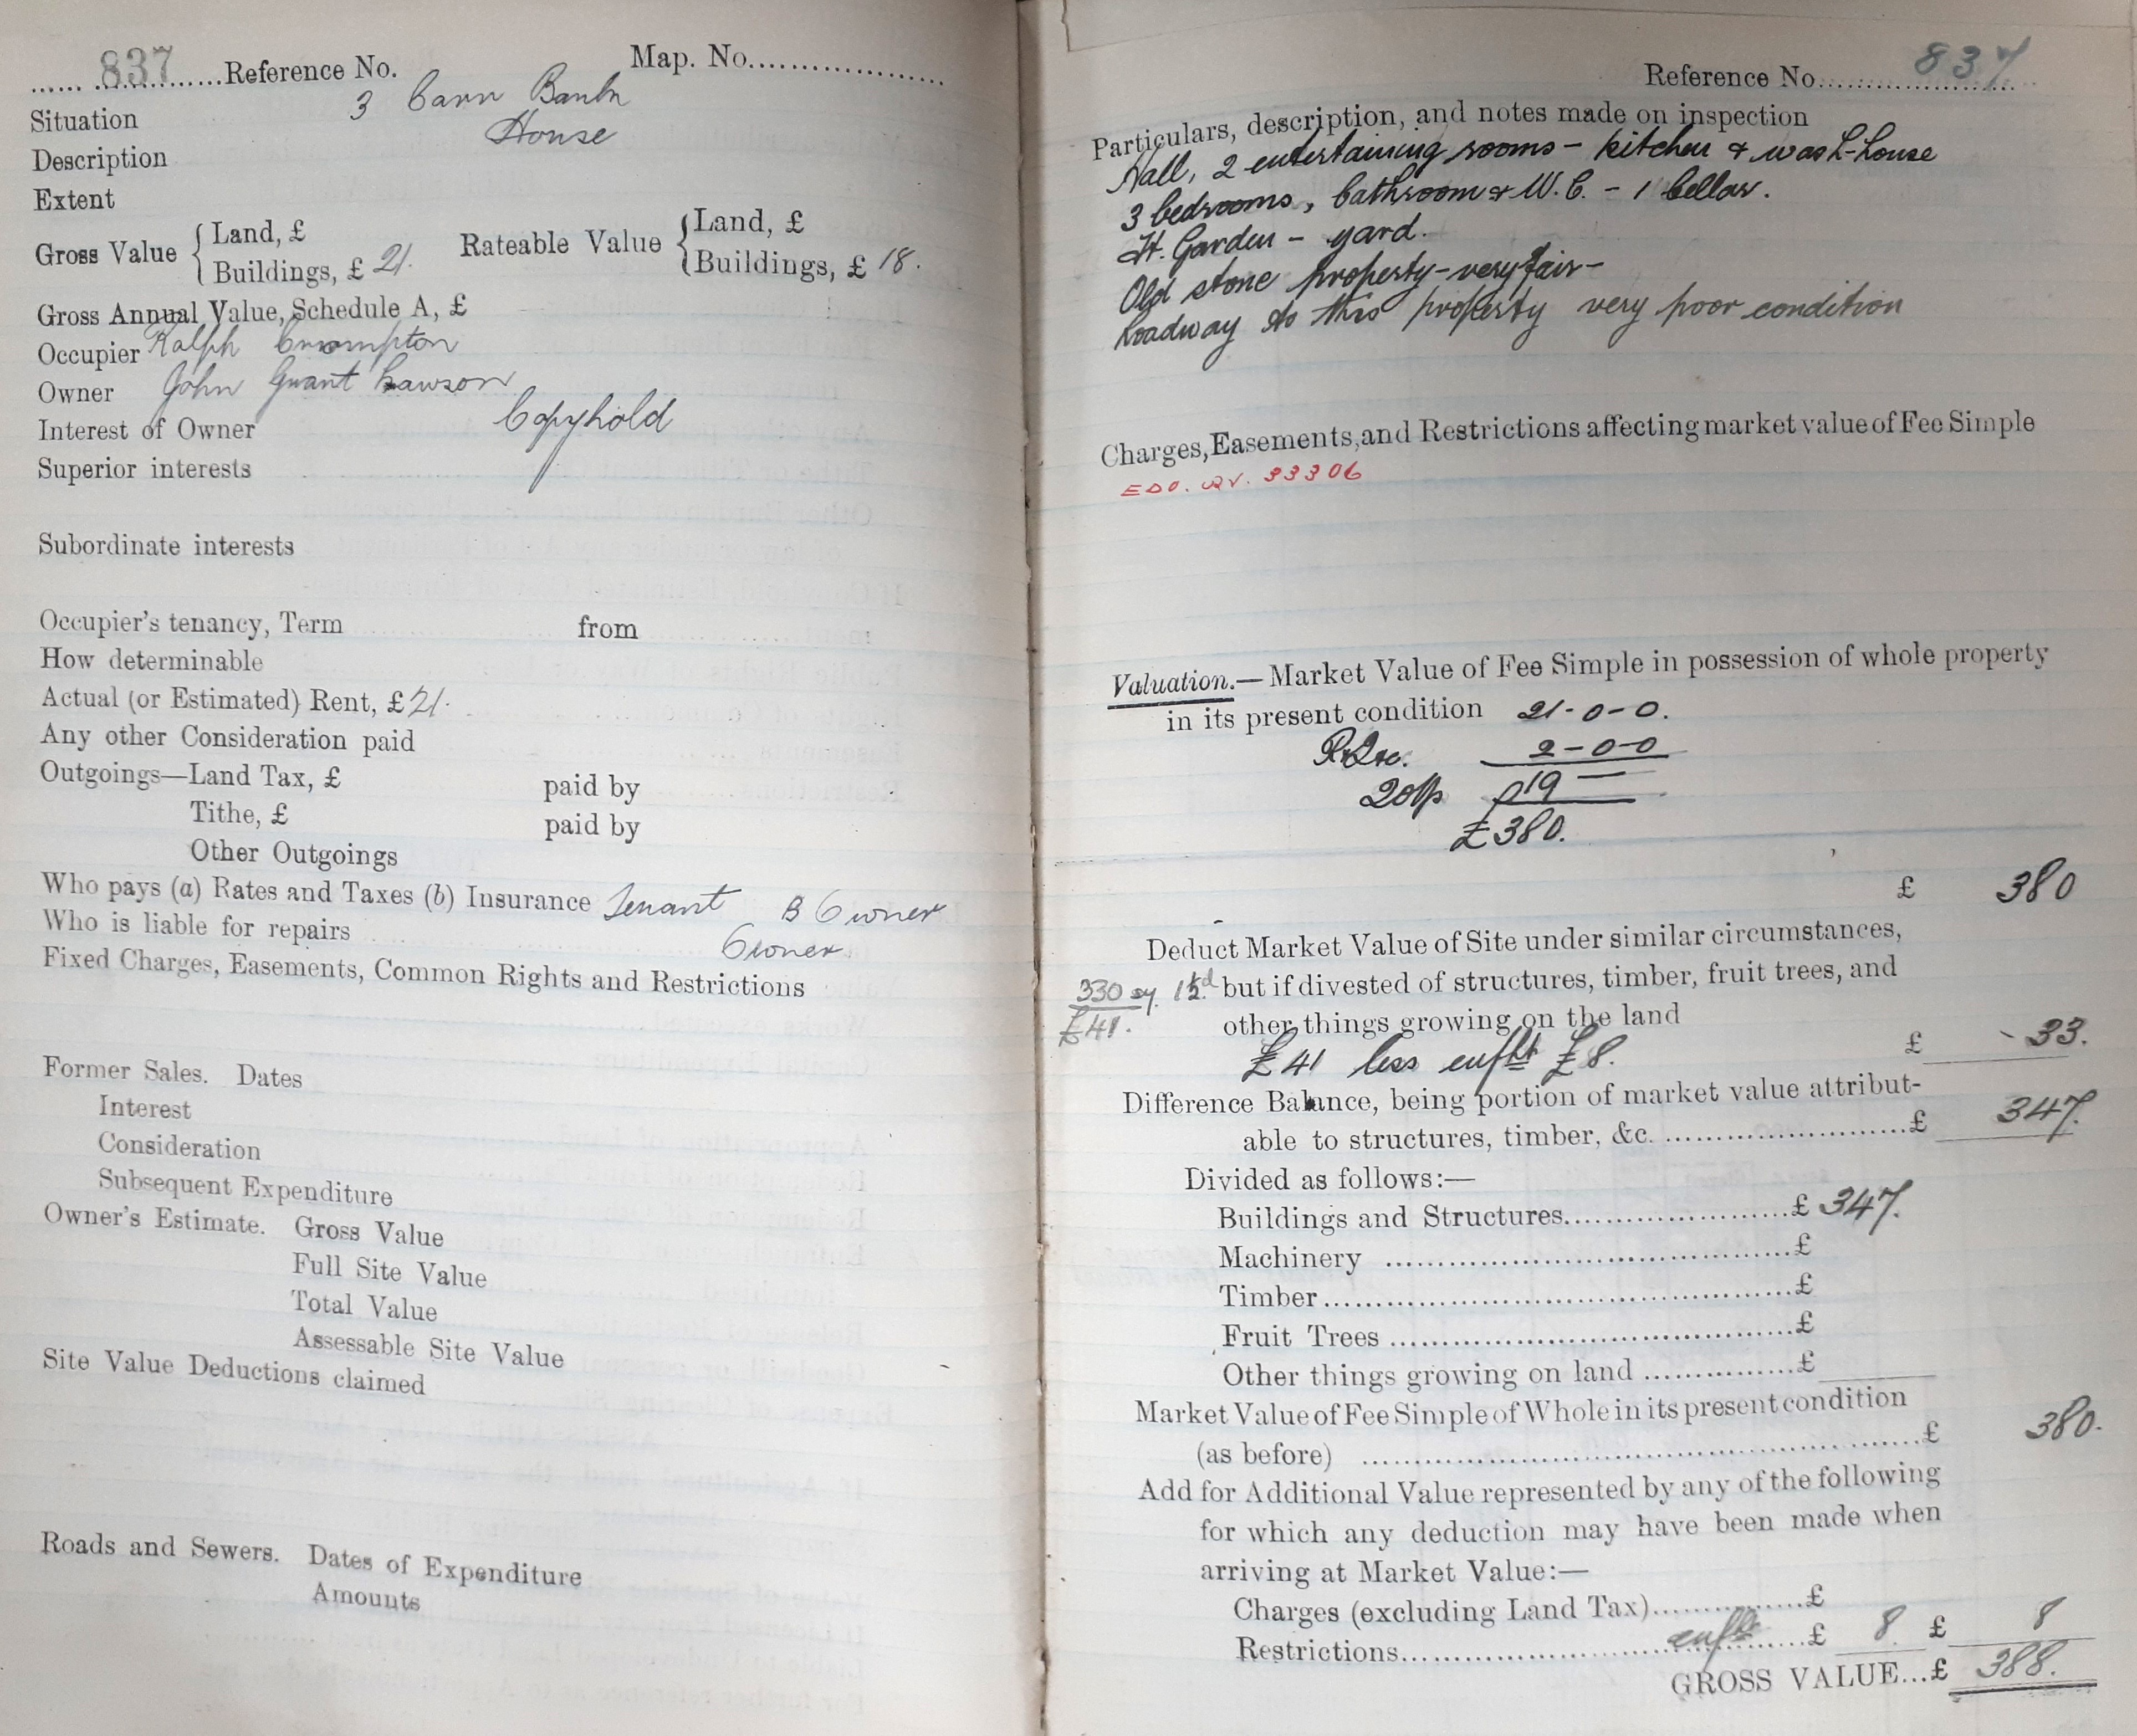 837 Reference No. Map. No.
Situation 3 Carr Bank
Description House
Extent
Gross Value { Land, £
Buildings, £ 21. Rateable Value { Land, £
Buildings, £ 18.
Gross Annual Value, Schedule A, £
Occupier Ralph Crompton
Owner John Grant Lawson
Interest of Owner Copyhold
Superior interests
Subordinate interests
Occupier's tenancy, Term from
How determinable
Actual (or Estimated) Rent, £ 21.
Any other Consideration paid
Outgoings—Land Tax, £ paid by
Tithe, £ paid by
Other Outgoings
Who pays (a) Rates and Taxes (b) Insurance Tenant B Owner
Who is liable for repairs Owner
Fixed Charges, Easements, Common Rights and Restrictions
Former Sales. Dates
Interest
Consideration
Subsequent Expenditure
Owner's Estimate. Gross Value
Full Site Value
Total Value
Assessable Site Value
Site Value Deductions claimed
Roads and Sewers. Dates of Expenditure
Amounts
Reference No. 837
Particulars, description, and notes made on inspection
Hall, 2 entertaining rooms - kitchen & wash-house
3 bedrooms, bathroom & W.C. - 1 Cellar.
Ft. Garden - yard.
Old stone property - very fair -
Roadway to this property very poor condition
Charges, Easements, and Restrictions affecting market value of Fee Simple
33306
Valuation.— Market Value of Fee Simple in possession of whole property
in its present condition 21-0-0.
2-0-0
20 yp 19 —
£380.
£ 380
Deduct Market Value of Site under similar circumstances,
330 sy. 1/2d. but if divested of structures, timber, fruit trees, and
£41. other things growing on the land
£41 less enfht £8. £ - 33.
Difference Balance, being portion of market value attribut-
able to structures, timber, &c. £ 347.
Divided as follows:—
Buildings and Structures £ 347.
Machinery £
Timber £
Fruit Trees £
Other things growing on land £
Market Value of Fee Simple of Whole in its present condition
(as before) £ 380.
Add for Additional Value represented by any of the following
for which any deduction may have been made when
arriving at Market Value:—
Charges (excluding Land Tax) £
Restrictions enfht £ 8. £ 8
GROSS VALUE...£ 388.